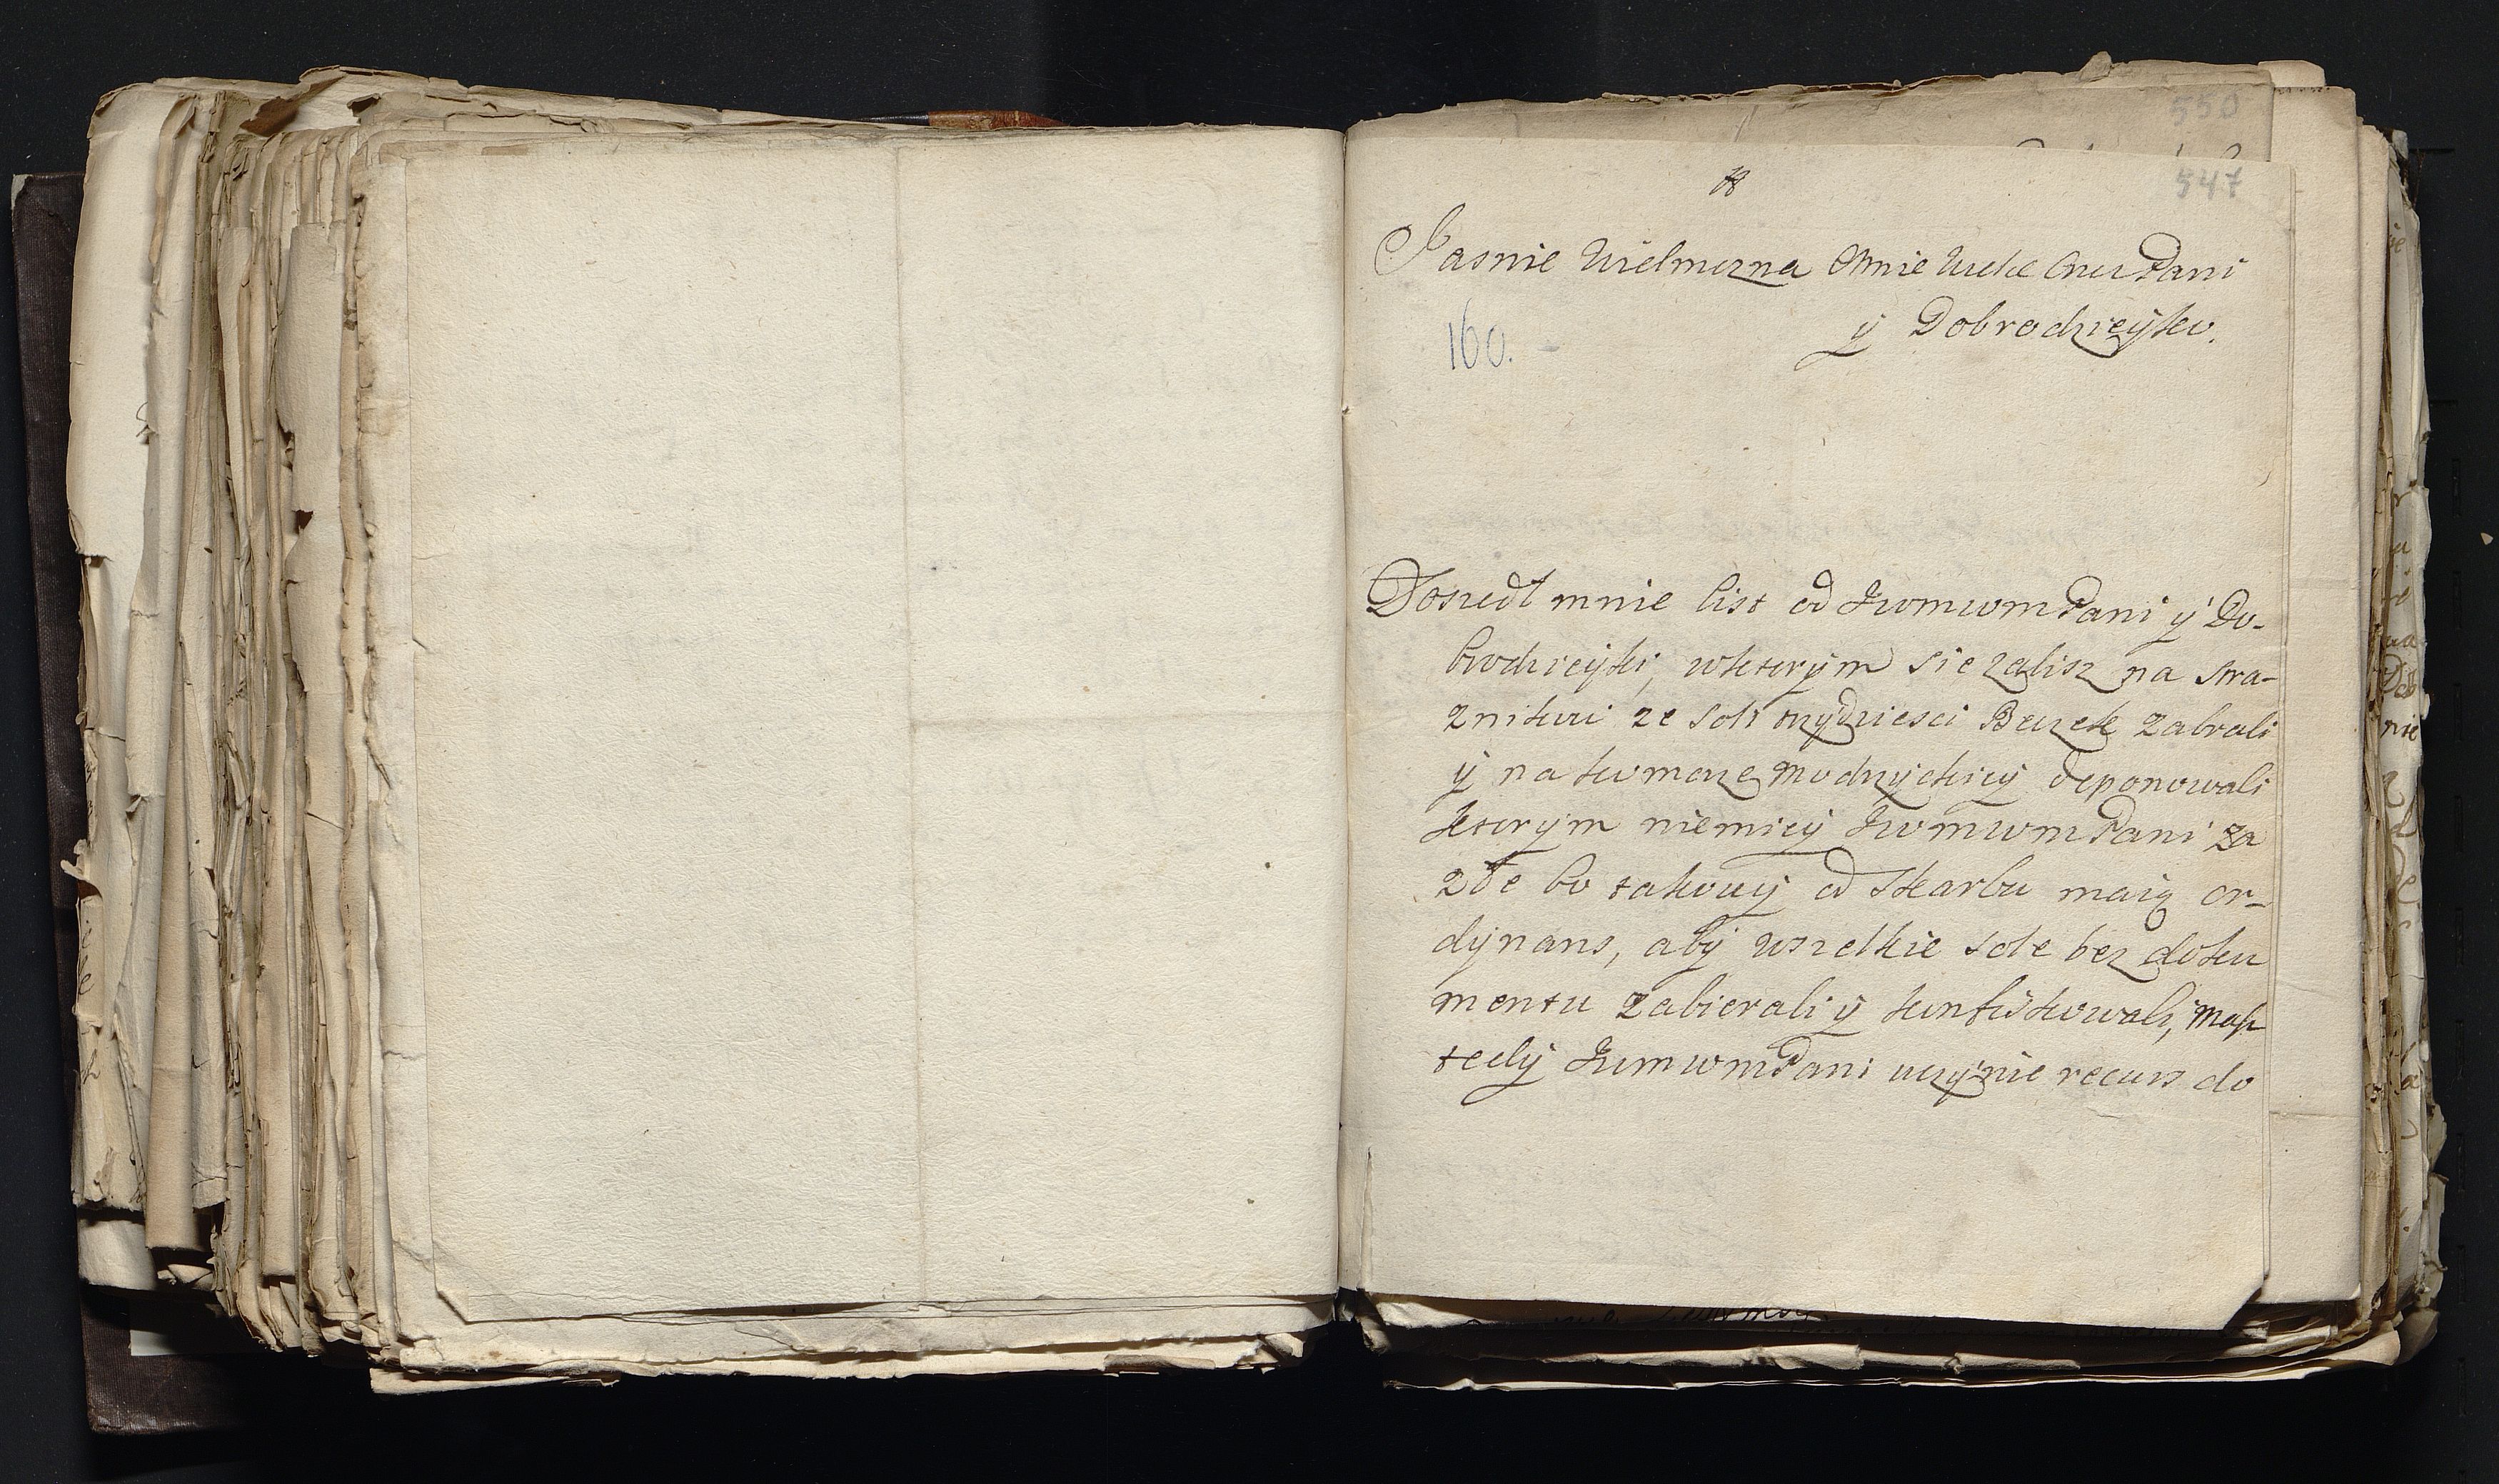 550
547
Jasnie Wielmozna Mnie Wielce Mcia Pani
y Dobrodzieyko.
160.
Doszedł mnie list od JwmwmPani y Do-
brodzieyki, wktorym sie zalisz na stra-
znikow ze soli trzydziesci Beczek zabrali
y na komorze modrzyckiey deponowali
ktorym niemiey JwmwmPani za
złe bo takowy od skarbu maią or-
dynans, aby wszelkie sole bez doku
mentu zabierali y konfiskowali,
tedy JwmwmPani uczynic recurs do